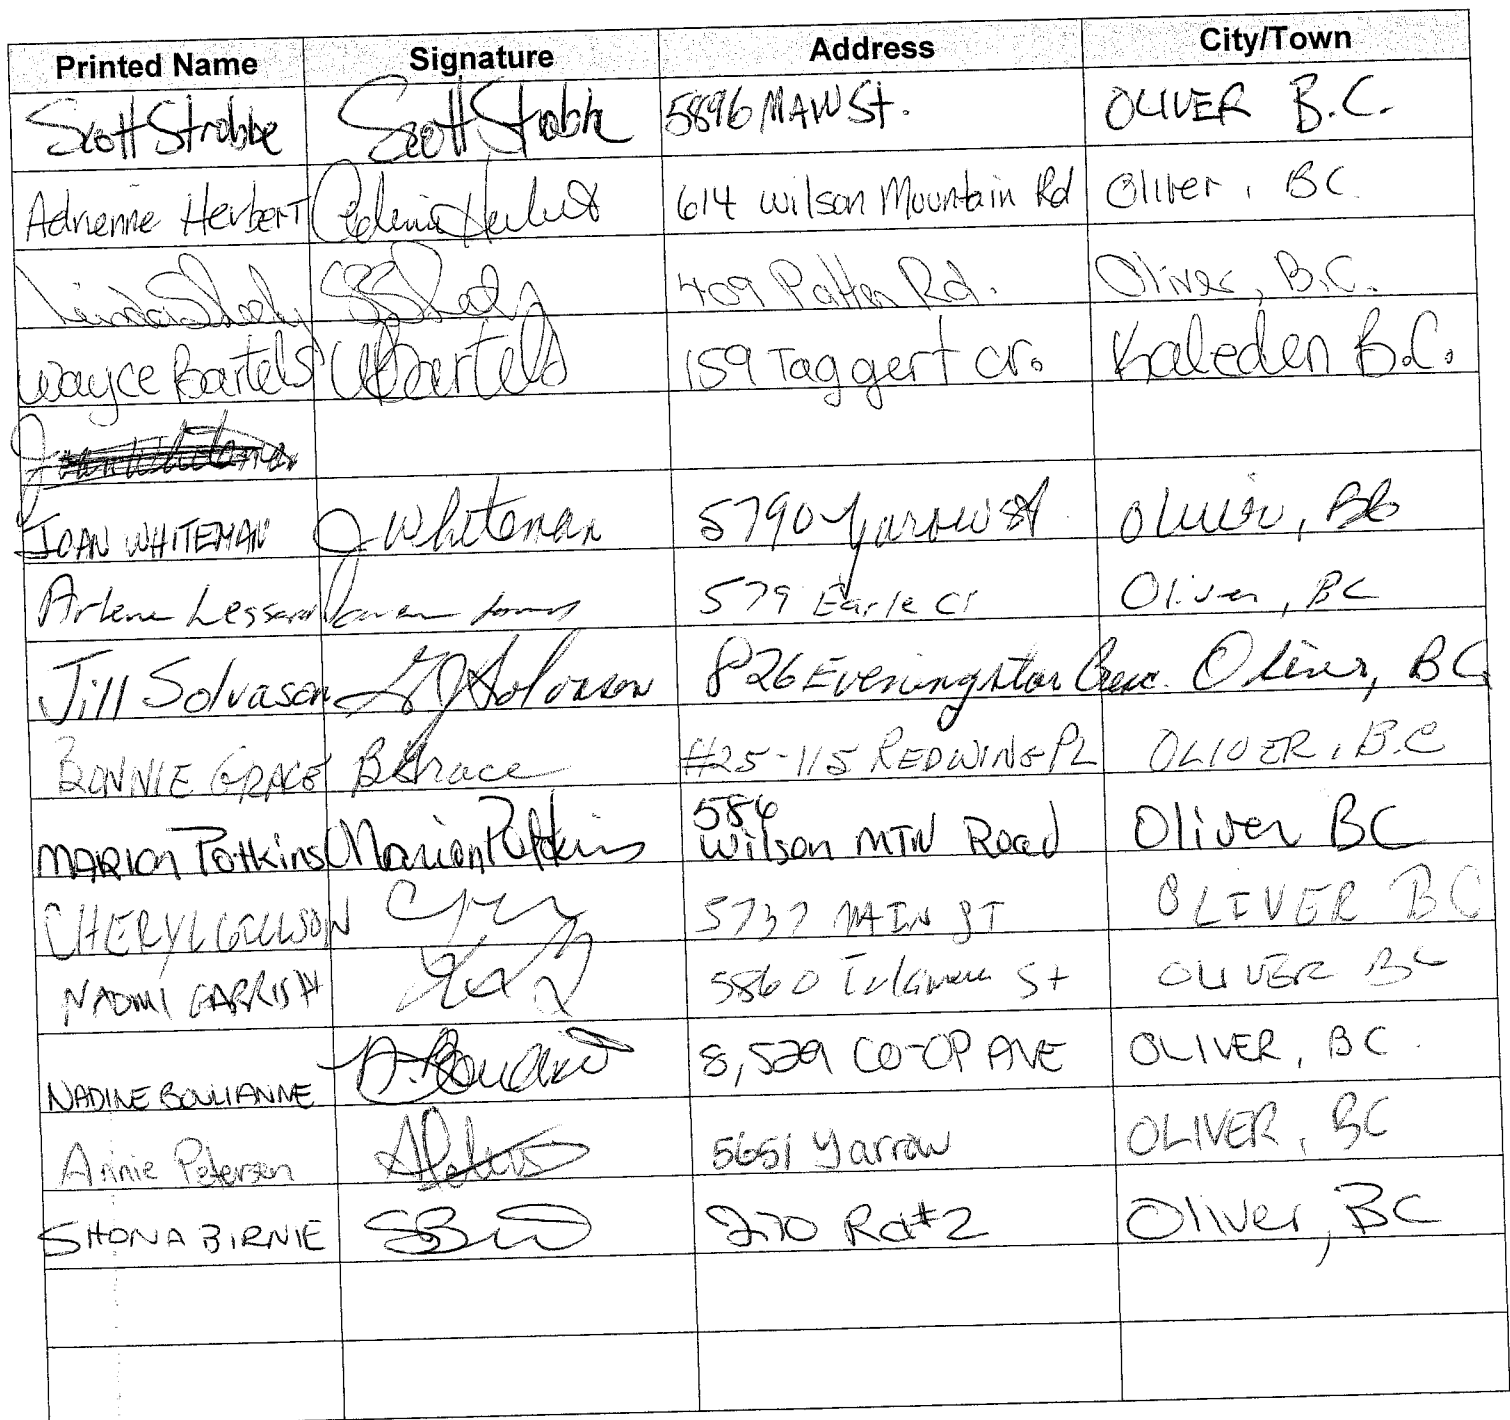 Printed Name Signature Address City/Town
Scott Strobbe Scott Strobbe 5896 MAIN St. OLIVER B.C.
Adrienne Herbert Herbert 614 Wilson Mountain Rd Oliver, BC.
Linda 409 Patten Rd. Oliver, B.C.
Wayce Bartels WBartels 159 Taggert cr. Kaleden B.C.
JOAN WHITEMAN J Whiteman 5790 Yarrow St. Oliver, BC
Arlene Lessard 579 Earle Cr Oliver, BC
Jill Solvason Solvason 826 Eveningstar Cresc. Oliver, BC
BONNIE GRACE B Grace #25-115 REDWING PL OLIVER, B.C
MARION Potkins Marion Potkins 586 Wilson MTN Road Oliver BC
CHERYL GILLSON 5737 MAIN ST OLIVER BC
NAOMI GARRISH 5860 St OLIVER BC
NADINE BOULIANNE N. 8,529 CO-OP AVE OLIVER, BC.
Annie Petersen 5651 Yarrow OLIVER, BC
SHONA BIRNIE 270 Rd #2 Oliver, BC